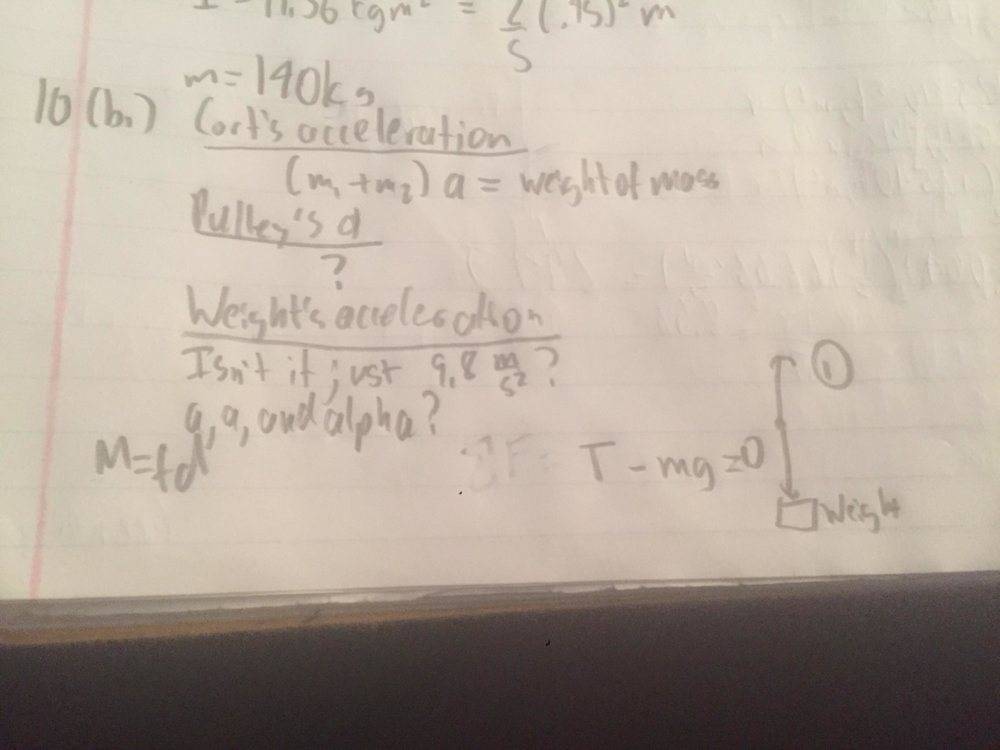 = 2/5 (.45)² m
m = 140kg
10 (b.) Cart's acceleration
(m₁ + m₂) a = weight of mass
Pulley's a
?
Weight's acceleration
Isn't it just 9.8 m/s² ?
a, a, and alpha?
M=fd
T - mg = 0
①
Weight